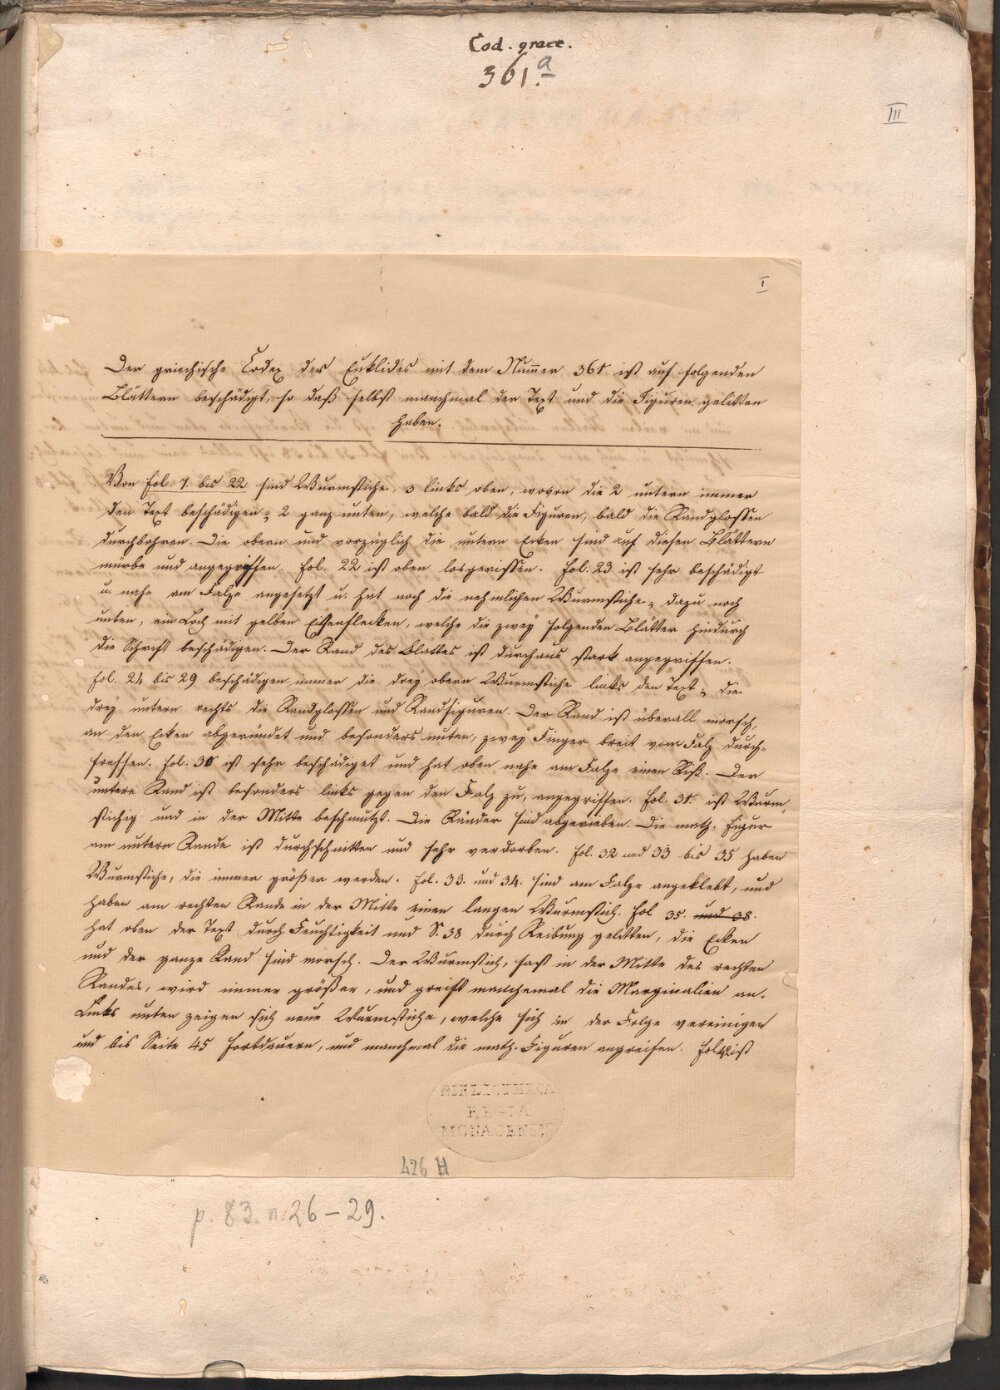 Cod. graec.
361.a
III
I
Der griechische Codex des Euklides mit dem Num̅er 361 ist auf folgenden
Blättern beschädigt, so daß selbst manchmal der Text und die Figuren gelitten
haben.
Von fol. 1 bis 22 sind Wurmstiche, 3 links oben, wovon die 2 untern immer
den Text beschädigen; 2 ganz unten, welche bald die Figuren, bald die Randglossen
durchbohren. Die obern und vorzüglich die untern Ecken sind auf diesen Blättern
mürbe und angegriffen. Fol. 22 ist oben losgerissen. Fol. 23 ist sehr beschädigt
u. nahe am Falze angesetzt u. hat noch die nehmlichen Wurmstiche, dazu noch
unten, ein Loch mit gelben Eisenflecken, welche die zwey folgenden Blätter hindurch
die Schrift beschädigen. Der Rand des Blattes ist durchaus stark angegriffen.
Fol. 24 bis 29 beschädigen immer die drey obern Wurmstiche links den Text; die
drey untern rechts die Randglossen und Randfiguren. Der Rand ist überall morsch,
an den Ecken abgerundet und besonders unten, zwey Finger breit vom Falz durch-
fressen. Fol. 30 ist sehr beschädiget und hat oben nahe am Falze einen Riß. Der
untere Rand ist besonders links gegen den Falz zu, angegriffen. Fol. 31. ist Wurm-
stichig und in der Mitte beschmutzt. Die Ränder sind abgerieben. Die math. Figur
am untern Rande ist durchschnitten und sehr verdorben. Fol. 32 und 33 bis 35 haben
Wurmstiche, die immer größer werden. Fol. 33. und 34. sind am Falze angeklebt, und
haben am rechten Rande in der Mitte einen langen Wurmstich. Fol 35. und 38.
hat oben der Text durch Feuchtigkeit und S. 38 durch Reibung gelitten, die Ecken
und der ganze Rand sind morsch. Der Wurmstich, fast in der Mitte des rechten
Randes, wird immer größer, und greift manchemal die Marginalien an.
Links unten zeigen sich neue Wurmstiche, welche sich in der Folge vereinigen
und bis Seite 45 fortdauern, und manchmal die math. Figuren angreifen. Fol ist
BIBLIOTHECA
REGIA
MONACENSIS
426 H
p. 83. n. 26-29.